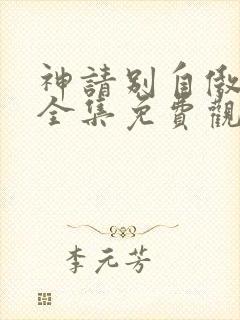 神請別自傲
全集免費觀
李元芳